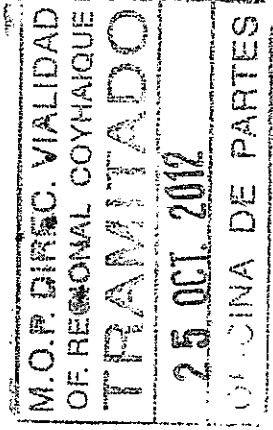 M.O.P. DIREC. VIALIDAD
OF. REGIONAL COYHAIQUE
TRAMITADO
25 OCT. 2012
OFICINA DE PARTES